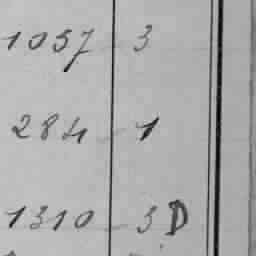 1037 - 3
284 - 1
1310 - 3 D